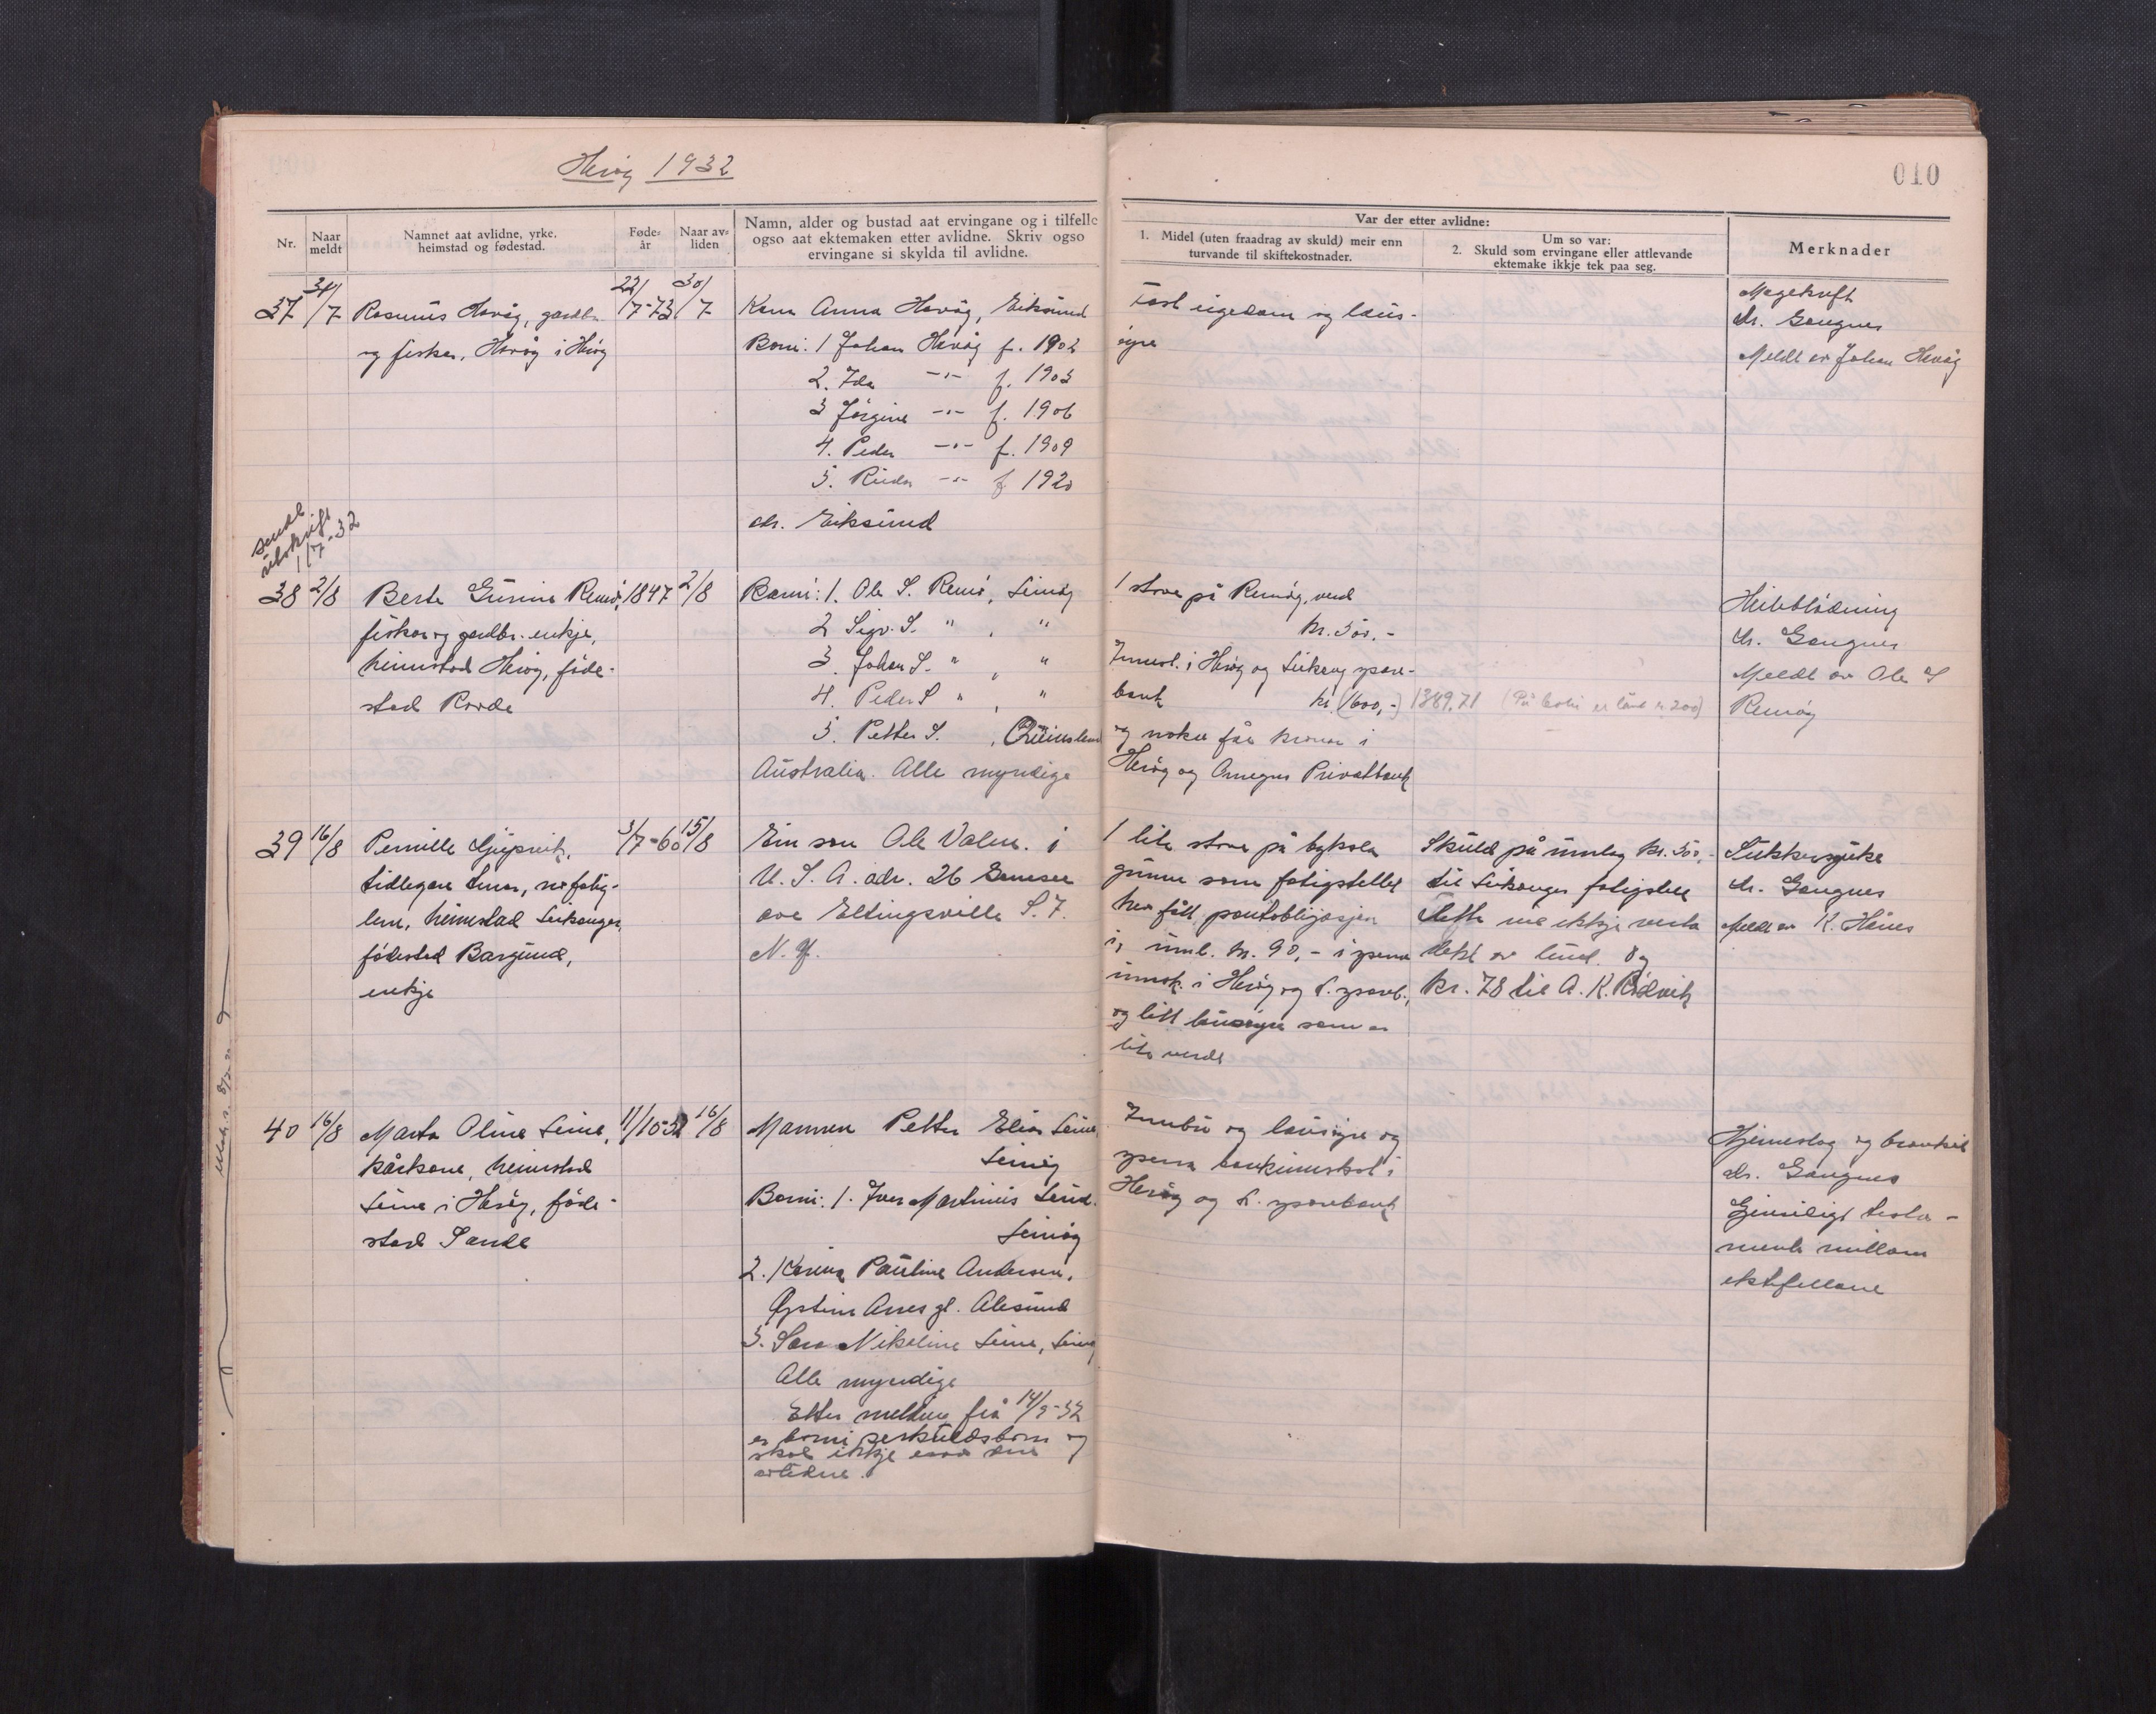 Herøy 1932
010
Nr.
Naar meldt
Namnet aat avlidne, yrke. heimstad og fødestad.
Føde-år
Naar av-liden
Namn, alder og bustad aat ervingane og i tilfelle
ogso aat ektemaken etter avlidne. Skriv ogso
ervingane si skylda til avlidne.
Var der etter avlidne:
1. Midel (uten fraadrag av skuld) meir enn
turvande til skiftekostnader.
Um so var:
2. Skuld som ervingane eller attlevande
ektemake ikkje tek paa seg.
Merknader
37 31/7 Rasmus Havåg, gardbr.
og fiskar, Havåg i Herøy
22/7-73
30/7
Kona Anna Havåg, Eiksund
Born: 1 Johan Havåg f. 1902
2. Ida -"- f. 1903
3 Jørgine -"- f. 1906
4. Peder -"- f. 1909
5. -"- f 1920
adr. Eiksund
Fast eigedom og laus-
øyre
Magekreft
dr. Gangnes
Meldt av Johan Havåg
sendt
utskrift
11/7-32
38 2/8 Berte Gurine Remø,
fiskar og gardbr. enkje,
heimstad Herøy, føde-
stad Rovde
1847
2/8
Born: 1. Ole S. Remø, Leinøy
2 Sigv. S. " , "
3. Johan S. " , "
4. Peder S " , "
5. Petter S. , Queensland
Australia. Alle myndige
1 stova på Remøy, verd
kr. 500.-
Innest. i Herøy og Leikong spare-
bank kr. (1600,-) 1389.71
og nokre få kroner i
Herøy og Omegns Privatbank
(På boki er lånt kr 200)
Heilebløding
dr. Gangnes
Meldt av Ole S
Remøy
39 16/8 Pernille Djupvik,
tidlegare Lunar, no fatig-
lem, heimstad Leikanger,
fødestad Borgund,
enkje
3/7-60
15/8
Ein son Ole Valen. i
U. S. A. adr. 26 Genesee
ave Eltingsville S. I.
N. Y.
1 lita stova på bygsla
grunn som fatigstellet
hev fått pantobligasjon
i, innl. kr. 90,- i spara
innsk. i Herøy og L. spareb.,
og litt lausøyre som er
lite verdt
Skuld på umlag kr. 500,-
til Leikanger fatigstell
Dette vil ikkje verta
dekt av buet. Og
kr. 78 til A. K. Rødvik
Sukkersjuke
dr. Gangnes
Meldt av K. Hånes
40 16/8 Marta Oline Leine,
kårkone, heimstad
Leine i Herøy, føde-
stad Sande
11/10-52
16/8
Mannen Petter Elias Leine,
Leinøy
Born: 1. Iver Martinus
Leinøy
2. Karina Pauline Andersen,
Øystein gt. Ålesund
3. Sara Nikoline Leine, Leinøy
Alle myndige
Etter melding frå 14/9-32
er borni serkullsborn og
skal ikkje erva den
avlidne.
Innbu og lausøyre og
spara bankinnskot i
Herøy og L. sparebank
Hjerneslag og bronkit
dr. Gangnes
Gjensidigt testa-
mente millom
ektefellane